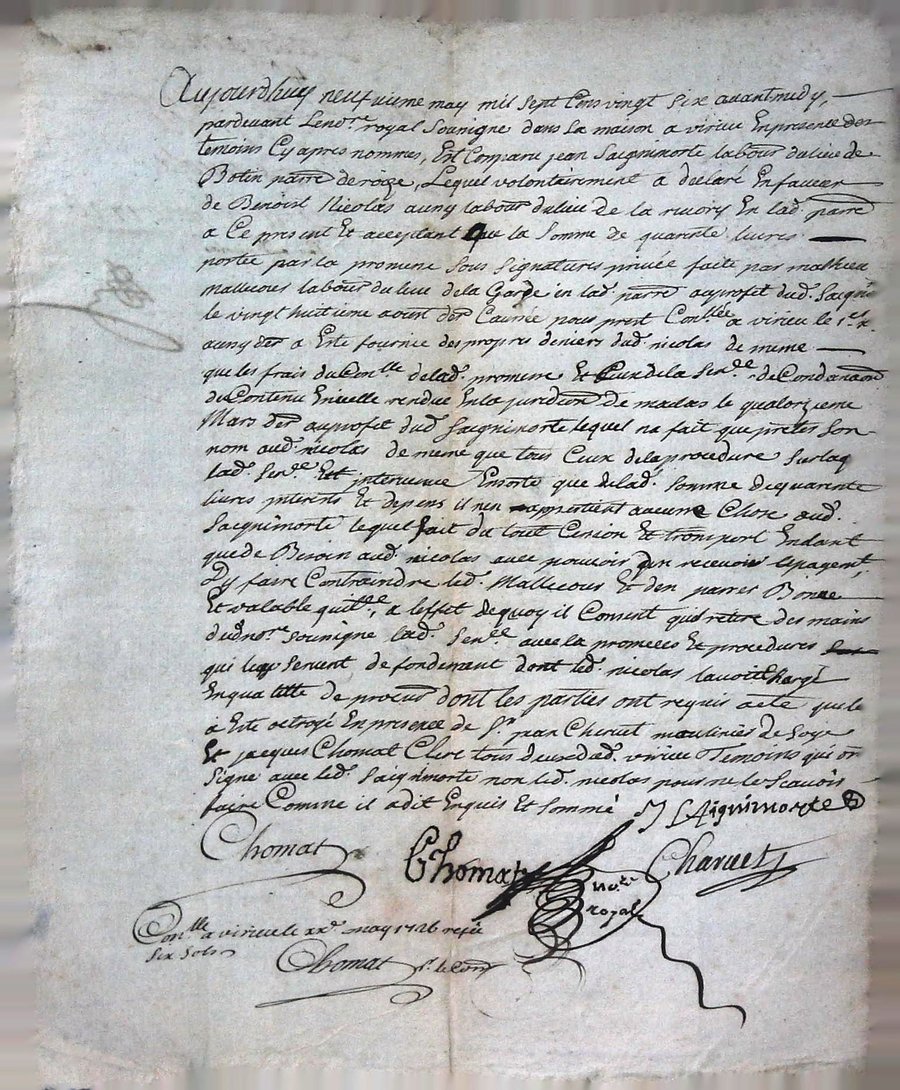 Aujourdhuy neufvieme may mil sept Cens vingt six avant midy,
pardevant Leno.re royal Sousigne dans la maison a virieu En presence des
temoins Cy apres nommes, Est Comparu jean Saignimorte labour du lieu de
Botin parre de roize, Lequel volontairement a declaré En faveur
de Benoist Nicolas aussy labour du lieu de la rivory En lad. parre
a Ce present Et acceptant que la Somme de quarante livres
portée par la promesse Sous Signatures privée faite par mathieu
mallecous labour du lieu de la Garde en lad. parre au profit dud. Saigni
le vingt huitieme aoust der Lannée nous prest Con.llée a virieu le
aussy der a Esté fournie des propres deniers dud. nicolas de meme
que les frais du Con.lle delad. promesse Et Ceux de la Sen.ce de Condanaon
du Contenu En icelle rendue En la juridion de malas le quatorzieme
Mars der au profit dud. Saignimorte lequel na fait que prêter son
nom aud. nicolas de meme que tous Ceux de la procedure Sur laq
lad. Sen.ce Est intervenue Ensorte que delad. Somme de quarente
livres interets Et depens il nen appertient aucune Chose aud.
Saignimorte lequel fait du tout Cession Et transport En tant
que de Besoin aud. nicolas avec pouvoir den recevoir le payement,
Dy faire Contraindre led. Mallecous Et den passer Bonne
Et valable quit.ce, a leffet de quoy il Consent quil retire des mains
dud no.re sousigne lad. Sen.ce avec la promesse Et procedures
qui luy servent de fondement dont led. nicolas lavoit Chargé
En qualitte de procur dont les parties ont requis acte que le
a Esté octroyé En presence de Sr. jean Charvet moulinier de Soye
Et jacques Chomat Clerc tous deux dud. virieu Temoins qui on
signé avec led. Saignimorte non led. nicolas pour ne le Scavoir
faire Comme il a dit Enquis Et Sommé J SAignimorte
Chomat Chomat Charvet
no.re
royal
Con.lle a virieu le xx.e may 1726 reçu
six sols
Chomat